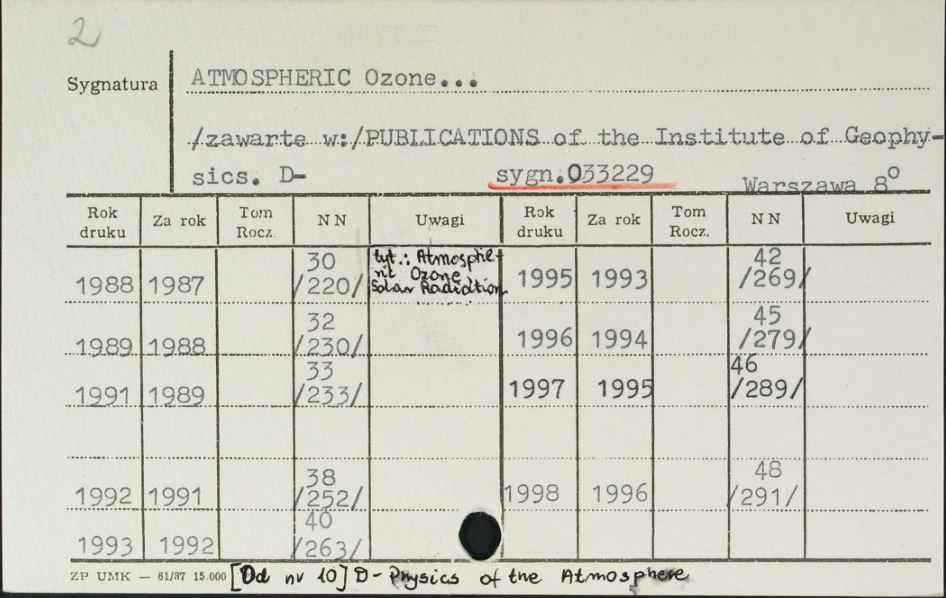 2
Sygnatura
ATMOSPHERIC Ozone...
/zawarte w:/PUBLICATIONS of the Institute of Geophy-
sics. D- sygn.033229 Warszawa 8°
Rok druku Za rok Tom Rocz. N N Uwagi Rok druku Za rok Tom Rocz. N N Uwagi
1988 1987 30 /220/ tyt.: Atmosphe- ric Ozone, Solar Radiation 1995 1993 42 /269/
1989 1988 32 /230/ 1996 1994 45 /279/
1991 1989 33 /233/ 1997 1995 46 /289/
1992 1991 38 /252/ 1998 1996 48 /291/
1993 1992 40 /263/
ZP UMK — 61/87 15.000 [Od nr 10] D- Physics of the Atmosphere